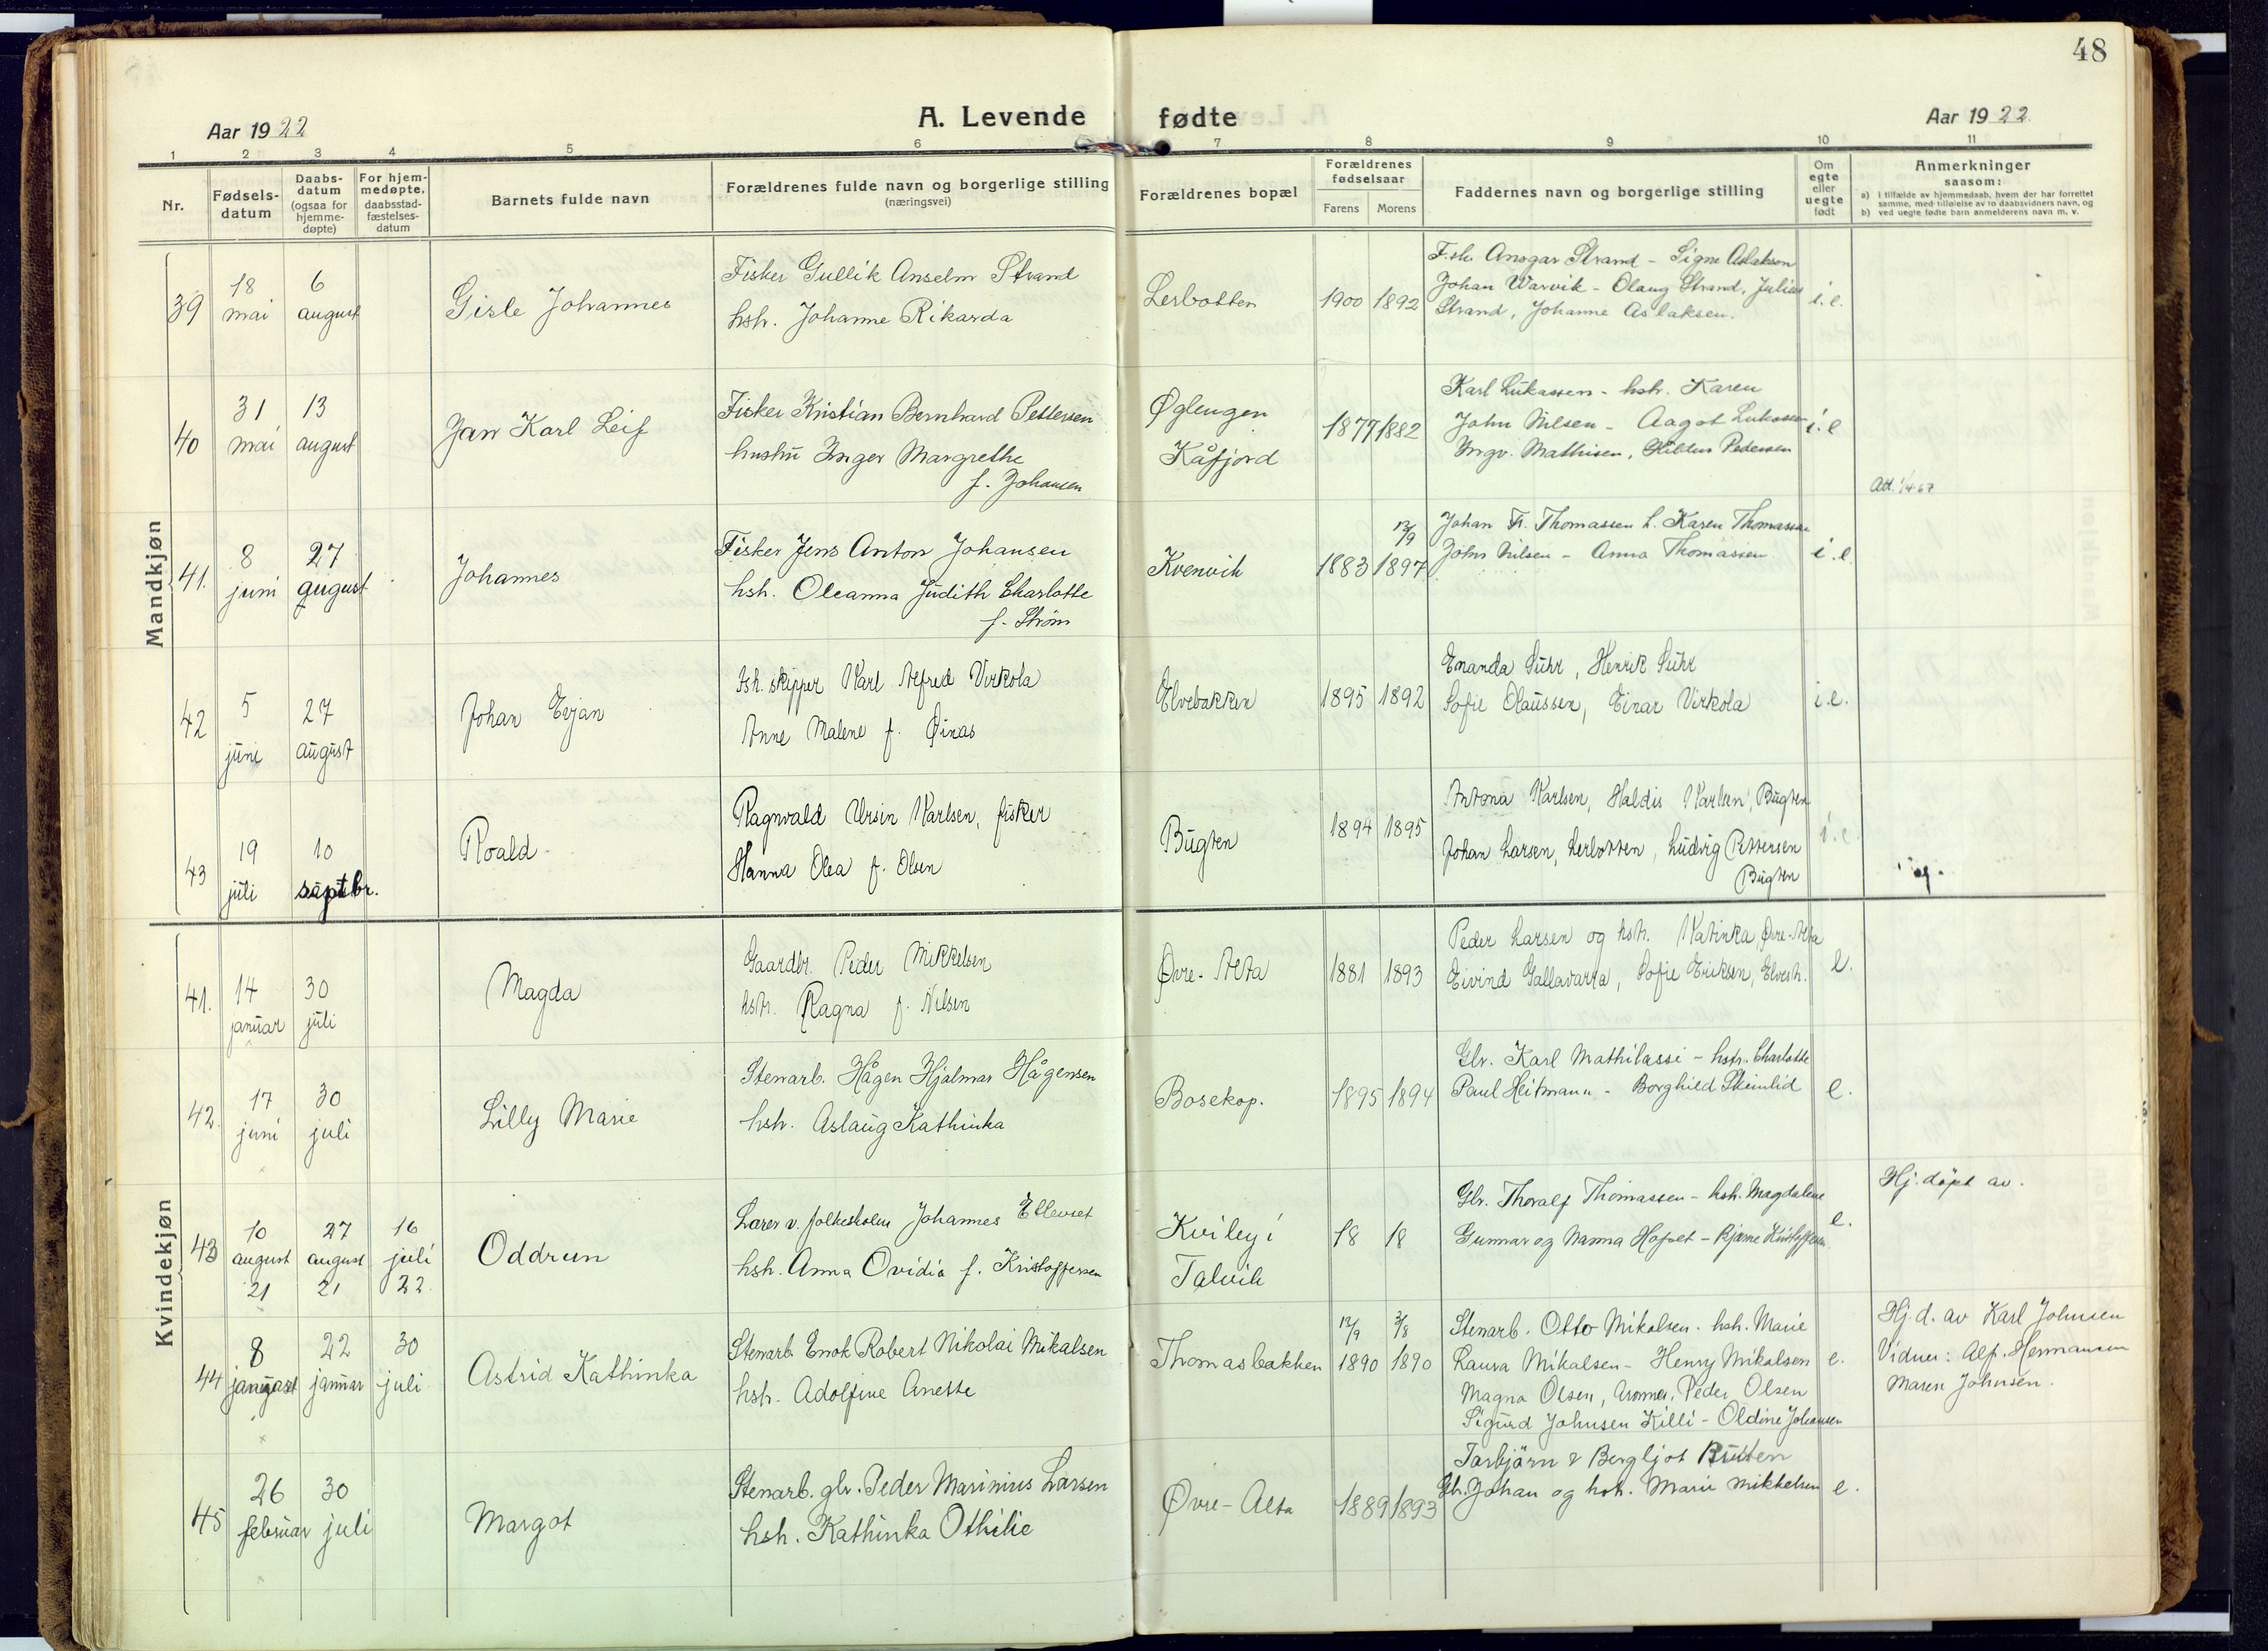 48
Aar 1922
A. Levende fødte
Aar 1922.
1 2 3 4 5 6 7 8 9 10 11
Nr.
Fødsels-
datum
Daabs-
datum
(ogsaa for
hjemme-
døpte)
For hjem-
medøpte,
daabsstad-
fæstelses-
datum
Barnets fulde navn
Forældrenes fulde navn og borgerlige stilling
(næringsvei)
Forældrenes bopæl
Forældrenes
fødselsaar
Farens Morens
Faddernes navn og borgerlige stilling
Om
egte
eller
uegte
født
Anmerkninger
saasom:
a) i tilfælde av hjemmedaab, hvem der har forrettet
samme, med tilføielse av to daabsvidners navn, og
b) ved uegte fødte barn anmelderens navn m. v.
Mandkjøn
39
18
mai
6
august
Gisle Johannes
Fisker Gullik Anselm Strand
hstr. Johanne Rikarda
Lerbotten
1900 1892
Ansgar Strand - Signe Aslaksen
Johan Warvik - Olaug Strand, Julius
Strand, Johanne Aslaksen.
i. e.
40
31
mai
13
august
Jan Karl Leif
Fisker Kristian Bernhard Pettersen
hustru Inger Margrethe
f. Johansen
Øglengen
Kåfjord
1877 1882
Karl Lukassen - hstr. Karen
John Nilsen - Aagot Lukassen
Ingv. Mathisen, Pedersen
i. e
Att. 1/4-67
41.
8
juni
27
august
Johannes
Fisker Jens Anton Johansen
hstr. Oleanna Judith Charlotte
f. Strøm
Kvenvik
1883
12/9
1897
Johan Fr. Thomassen h. Karen Thomassen
John Nilsen - Anna Thomassen.
i. e.
42
5
juni
27
august
Johan Evjan
fsk. skipper Karl Alfred Virkola
Anne Malene f. Øinas
Elvebakken
1895 1892
Enanda Suhr, Henrik Suhr
Sofie Olaussen, Einar Virkola
i. e.
43
19
juli
10
septbr.
Roald
Ragnvald Ursin Karlsen, fisker
Hanna Olea f. Olsen
Bugten
1894 1895
Antona Karlsen, Haldis Karlsen, Bugten
Johan Larsen, Lerbotten, Ludvig Pettersen
Bugten
i. e.
Kvindekjøn
41.
14
januar
30
juli
Magda
Gaardbr. Peder Mikkelsen
hstr. Ragna f. Nilsen
Øvre-Alta
1881 1893
Peder Larsen og hstr. Katinka, Øvre-Alta
Eivind Gallavarra, Sofie Eriksen, Elvesh.
e.
42.
17
juni
30
juli
Lilly Marie
Stenarb. Hågen Hjalmar Hågensen
hstr. Aslaug Kathinka
Bosekop.
1895 1894
Gbr. Karl Mathilassi - hstr. Charlotte
Paul Heitmann - Borghild Skimlid
e.
43
10
august
21
27
august
21
16
juli
22
Oddrun
Lærer v. folkeskolen Johannes Ellevset
hstr. Anna Ovidia f. Kristoffersen
Kviley i
Talvik
18 18
Gbr. Thoralf Thomassen - hstr. Magdalene
Gunnar og Nanna Hopset - Bjarne Kristoffersen
e.
Hj. døpt av.
44
8
januar
22
januar
30
juli
Astrid Kathinka
Stenarb. Enok Robert Nikolai Mikalsen
hstr. Adolfine Anette
Thomasbakken
12/9
1890
3/8
1890
Stenarb. Otto Mikalsen. hstr. Marie
Laura Mikalsen - Henry Mikalsen
Magna Olsen, Aronnes, Peder Olsen
Sigurd Johnsen Killi - Oldine Johansen
e.
Hj. d. av Karl Johnsen
Vidner: Alf. Hermansen
Maren Johnsen.
45
26
februar
30
juli
Margot
Stenarb. gbr. Peder Marinius Larsen
hstr. Kathinka Othilie
Øvre-Alta
1889 1893
Torbjörn & Bergljot
Gbr. Johan og hstr. Marie Mikkelsen
e.